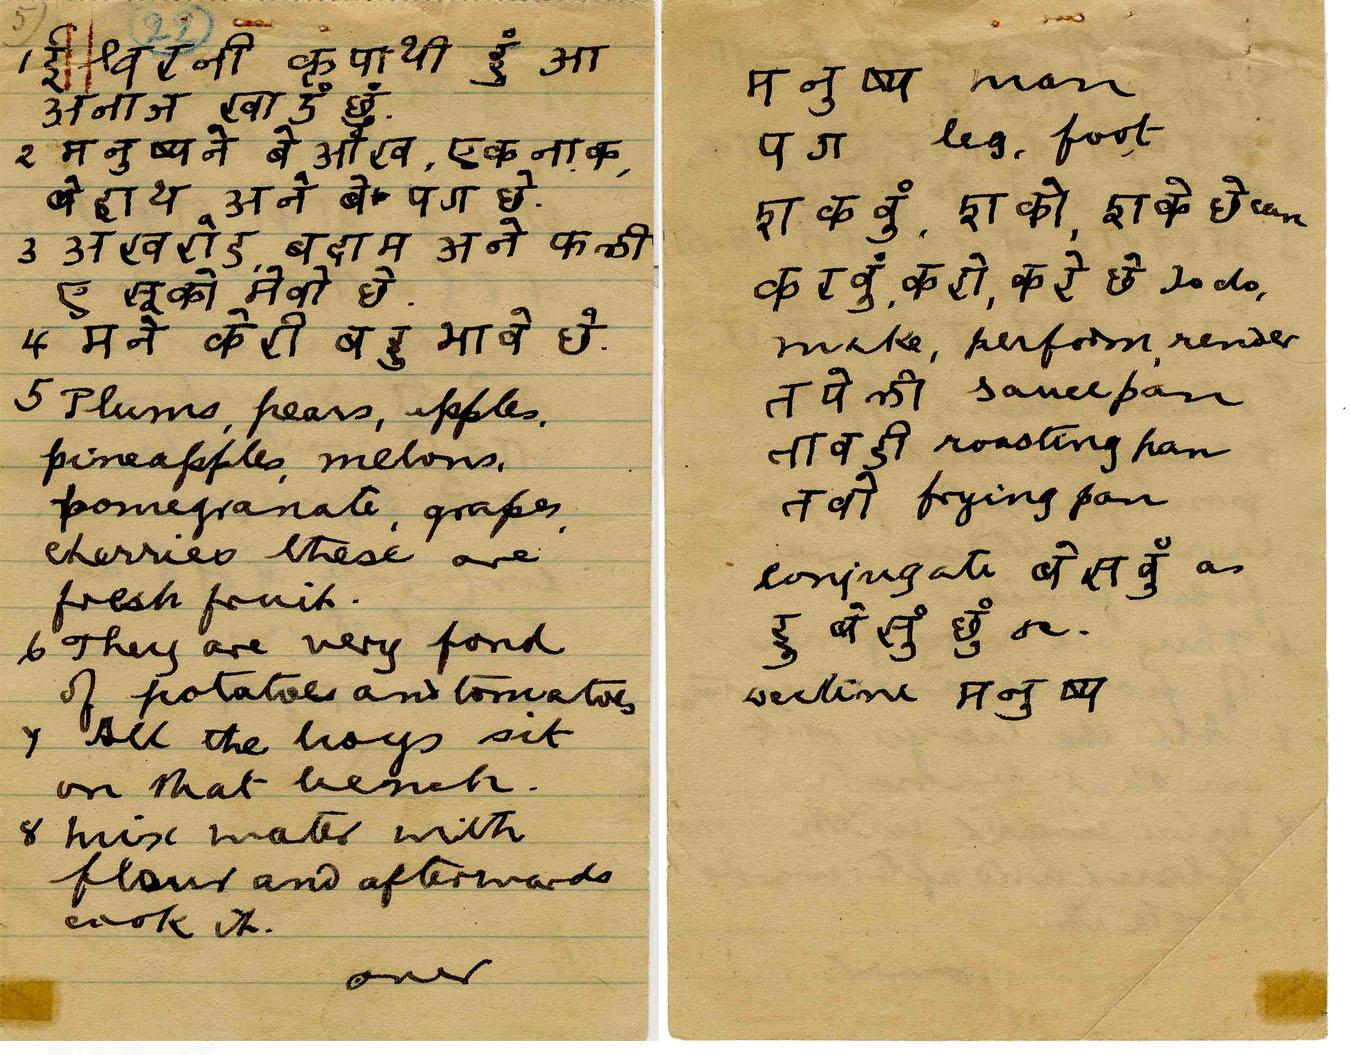 5) 22
1 ईश्वरनी कृपाथी हुं आ
अनाज खाउं छुं.
2 मनुष्यने बे आँख, एक नाक,
बे हाथ अने बे पग छे.
3 अखरोड, बदाम अने फळी
ए सूको मेवो छे.
4 मने केरी बहु भावे छे.
5 Plums, pears, apples,
pineapples, melons,
pomegranate, grapes,
cherries these are
fresh fruit.
6 They are very fond
of potatoes and tomatoes
7 All the boys sit
on that bench.
8 Mix water with
flour and afterwards
cook it.
over
मनुष्य man
पग leg, foot
शकवुं, शको, शके छे can
करवुं, करो, करे छे to do,
make, perform, render
तपेळी saucepan
तावडी roasting pan
तवो frying pan
conjugate बेसवुं as
हु बेसुं छुं
decline मनुष्य